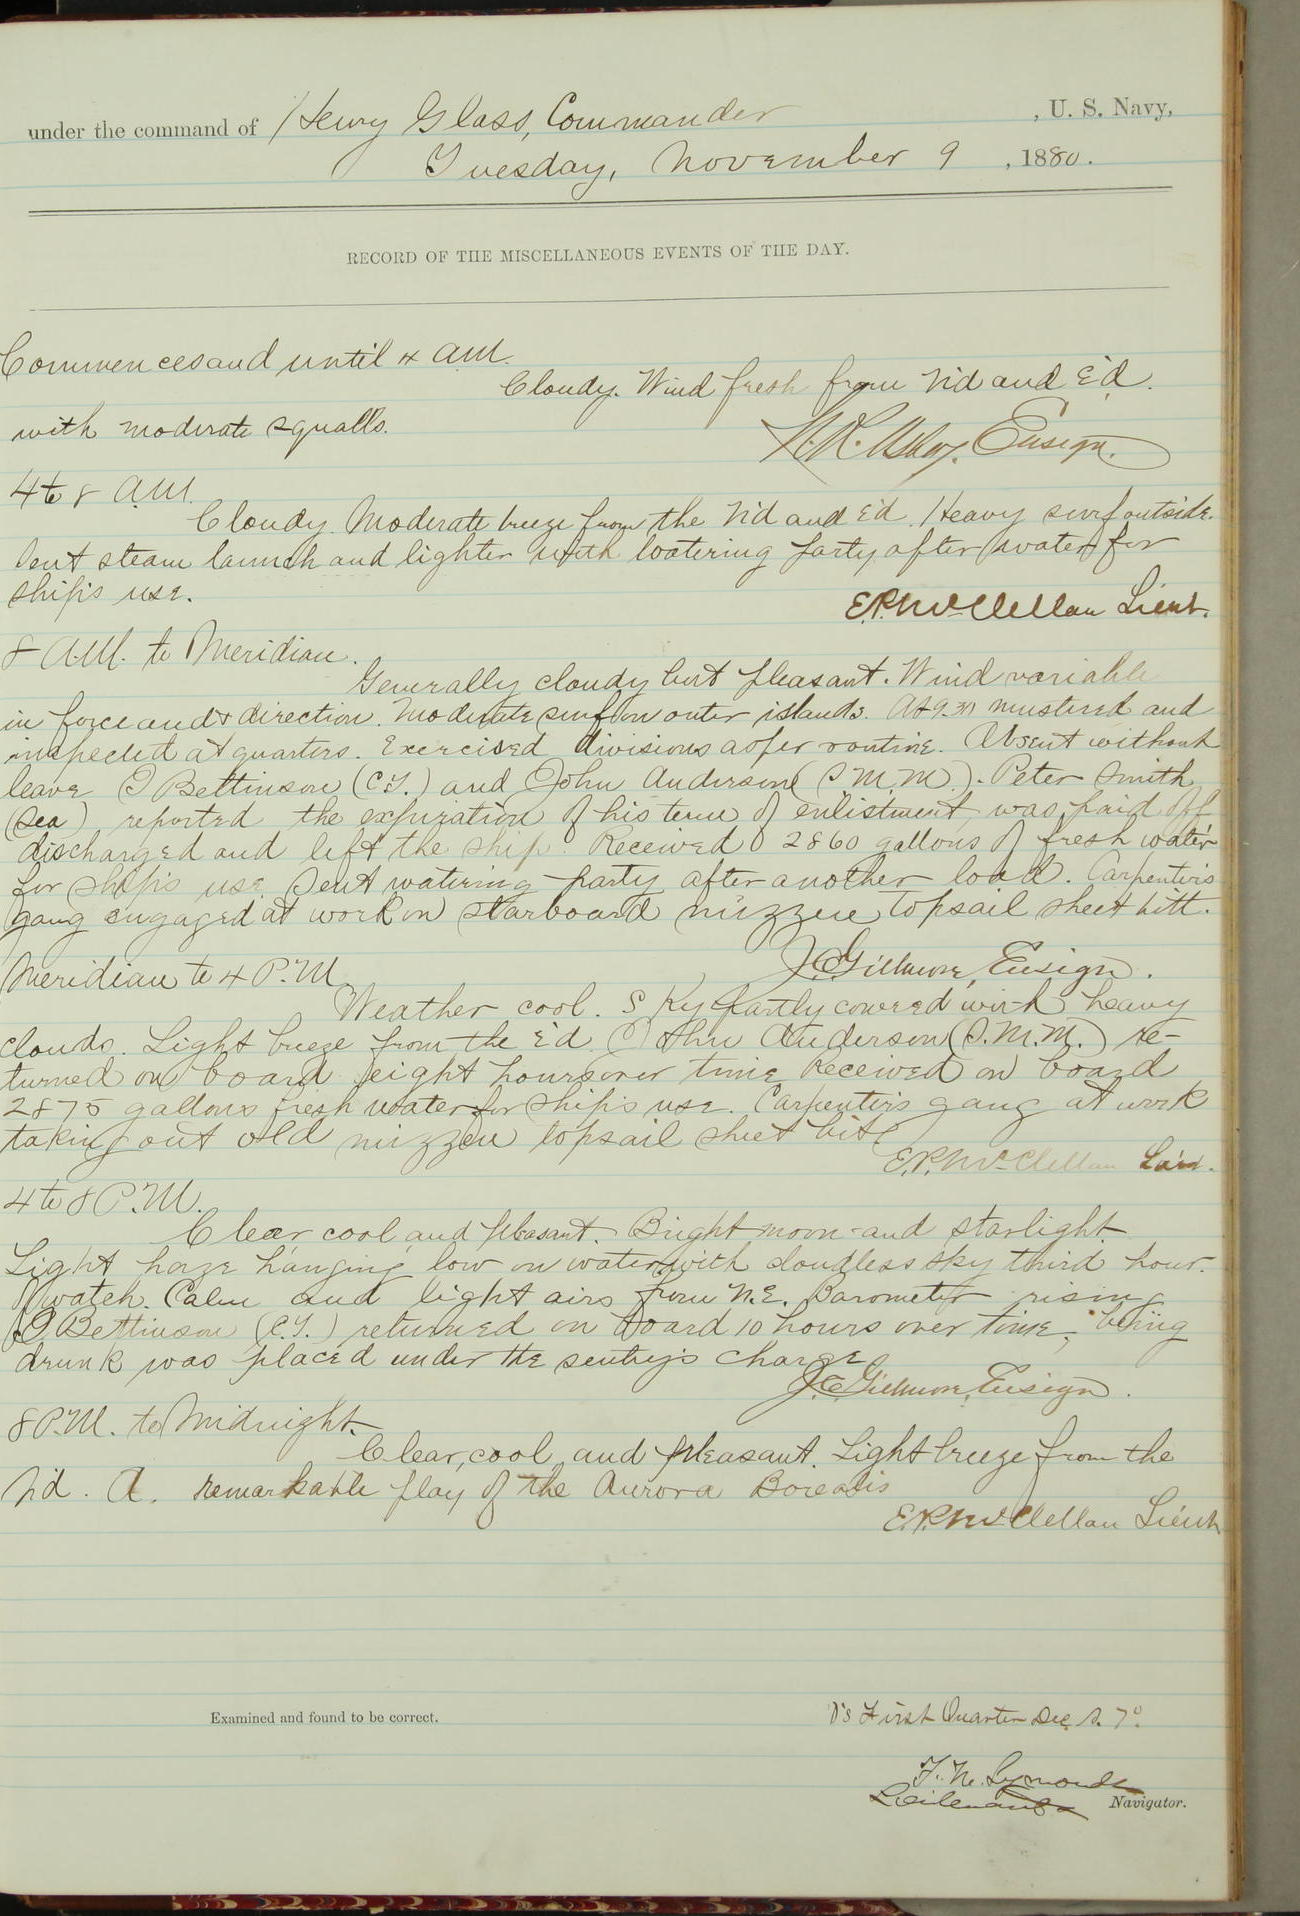 under the command of Henry Glass, Commander, U. S. Navy,
Tuesday, November 9, 1880.
RECORD OF THE MISCELLANEOUS EVENTS OF THE DAY.
Commences and until 4 A.M.
Cloudy. Wind fresh from N'd and E'd.
with moderate squalls.
Ensign.
4 to 8 A.M.
Cloudy. Moderate breeze from the N'd and E'd. Heavy surf outside.
Sent steam launch and lighter with watering party after water for
ship's use.
E.P. McClellan Lieut.
8 A.M. to Meridian.
Generally cloudy but pleasant. Wind variable
in force and direction. Moderate surf on outer islands. At 9.30 mustered and
inspected at quarters. Exercised divisions as per routine. Absent without
leave Bettinson (C.T.) and John Anderson (S.M.M.). Peter Smith
(Sea) reported the expiration of his term of enlistment, was paid off
discharged and left the ship. Received 2860 gallons of fresh water
for ship's use. Sent watering party after another load. Carpenter's
gang engaged at work on starboard mizzen topsail sheet bitt.
J.C. Gillmore, Ensign.
Meridian to 4 P.M.
Weather cool. Sky partly covered with heavy
clouds. Light breeze from the E'd. John Anderson (S.M.M.) re-
turned on board eight hours over time. Received on board
2875 gallons fresh water for ship's use. Carpenter's gang at work
taking out old mizzen topsail sheet bitt
E.P. McClellan Lieut.
4 to 8 P.M.
Clear, cool and pleasant. Bright moon and starlight.
Light haze hanging low on water with cloudless sky third hour
of watch. Calm and light airs from N.E. Barometer rising
Bettinson (C.T.) returned on board 10 hours over time; being
drunk was placed under the sentry's charge
J.C. Gillmore, Ensign.
8 P.M. to Midnight.
Clear, cool and pleasant. Light breeze from the
N'd. A remarkable play of the Aurora Borealis
E.P. McClellan Lieut
Examined and found to be correct.
First Quarter Dec. S. 7°.
F. M. Symonds
Lieutenant Navigator.